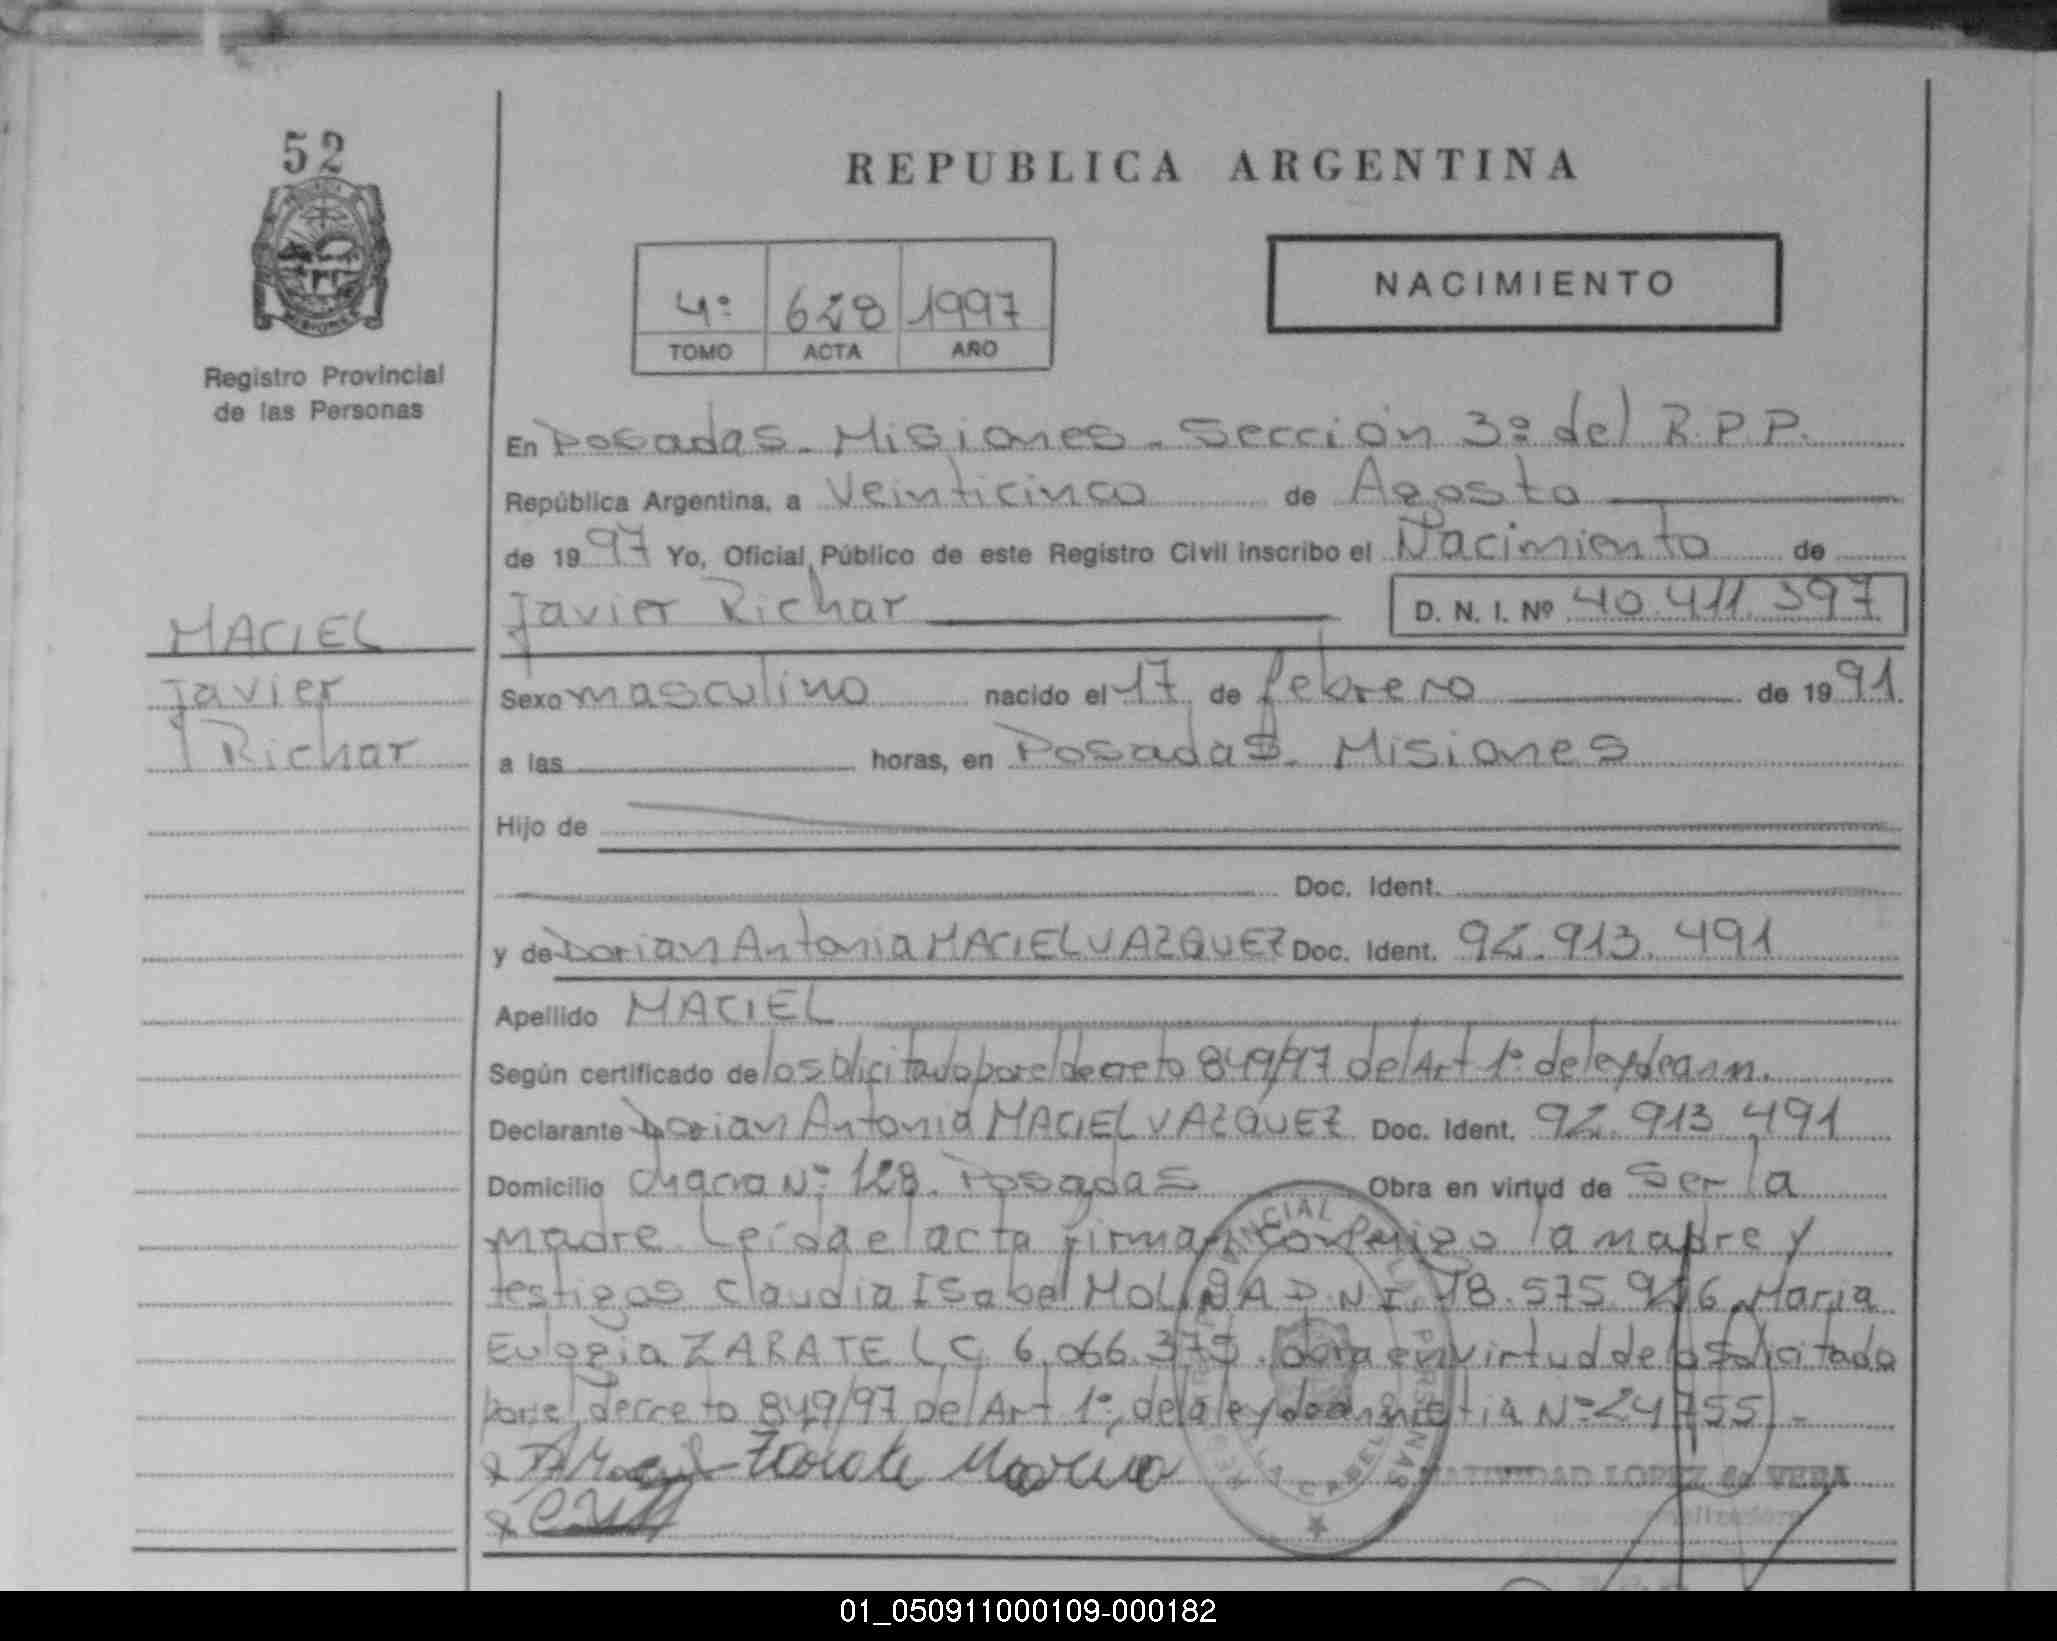 52
REPUBLICA ARGENTINA
NACIMIENTO
4º 628 1997
TOMO ACTA AÑO
Registro Provincial
de las Personas
En Posadas - Misiones - Sección 3º del R.P.P.
República Argentina, a Veinticinco de Agosto
de 1997 Yo, Oficial Público de este Registro Civil inscribo el Nacimiento de
Javier Richar D. N. I. Nº 40.411.397
MACIEL
Javier
Richar
Sexo masculino nacido el 17 de febrero de 1991.
a las horas, en Posadas - Misiones
Hijo de
Doc. Ident.
y de Dorian Antonia MACIEL VAZQUEZ Doc. Ident. 92.913.491
Apellido MACIEL
Según certificado de lo solicitado por el decreto 849/97 del Art 1º de ley de
Declarante Dorian Antonia MACIEL VAZQUEZ Doc. Ident. 92.913.491
Domicilio chacra Nº 128. Posadas Obra en virtud de ser la
madre Leída el acta firman conmigo la madre y
testigos Claudia Isabel D.N.I. 18.575. Maria
Eulogia ZARATE L.C. 6.066.375. obra en virtud de lo solicitado
por el decreto 849/97 del Art 1º, de la ley de amnistia Nº 24755 -
Zarate Maria
LOPEZ de VERA
01_050911000109-000182